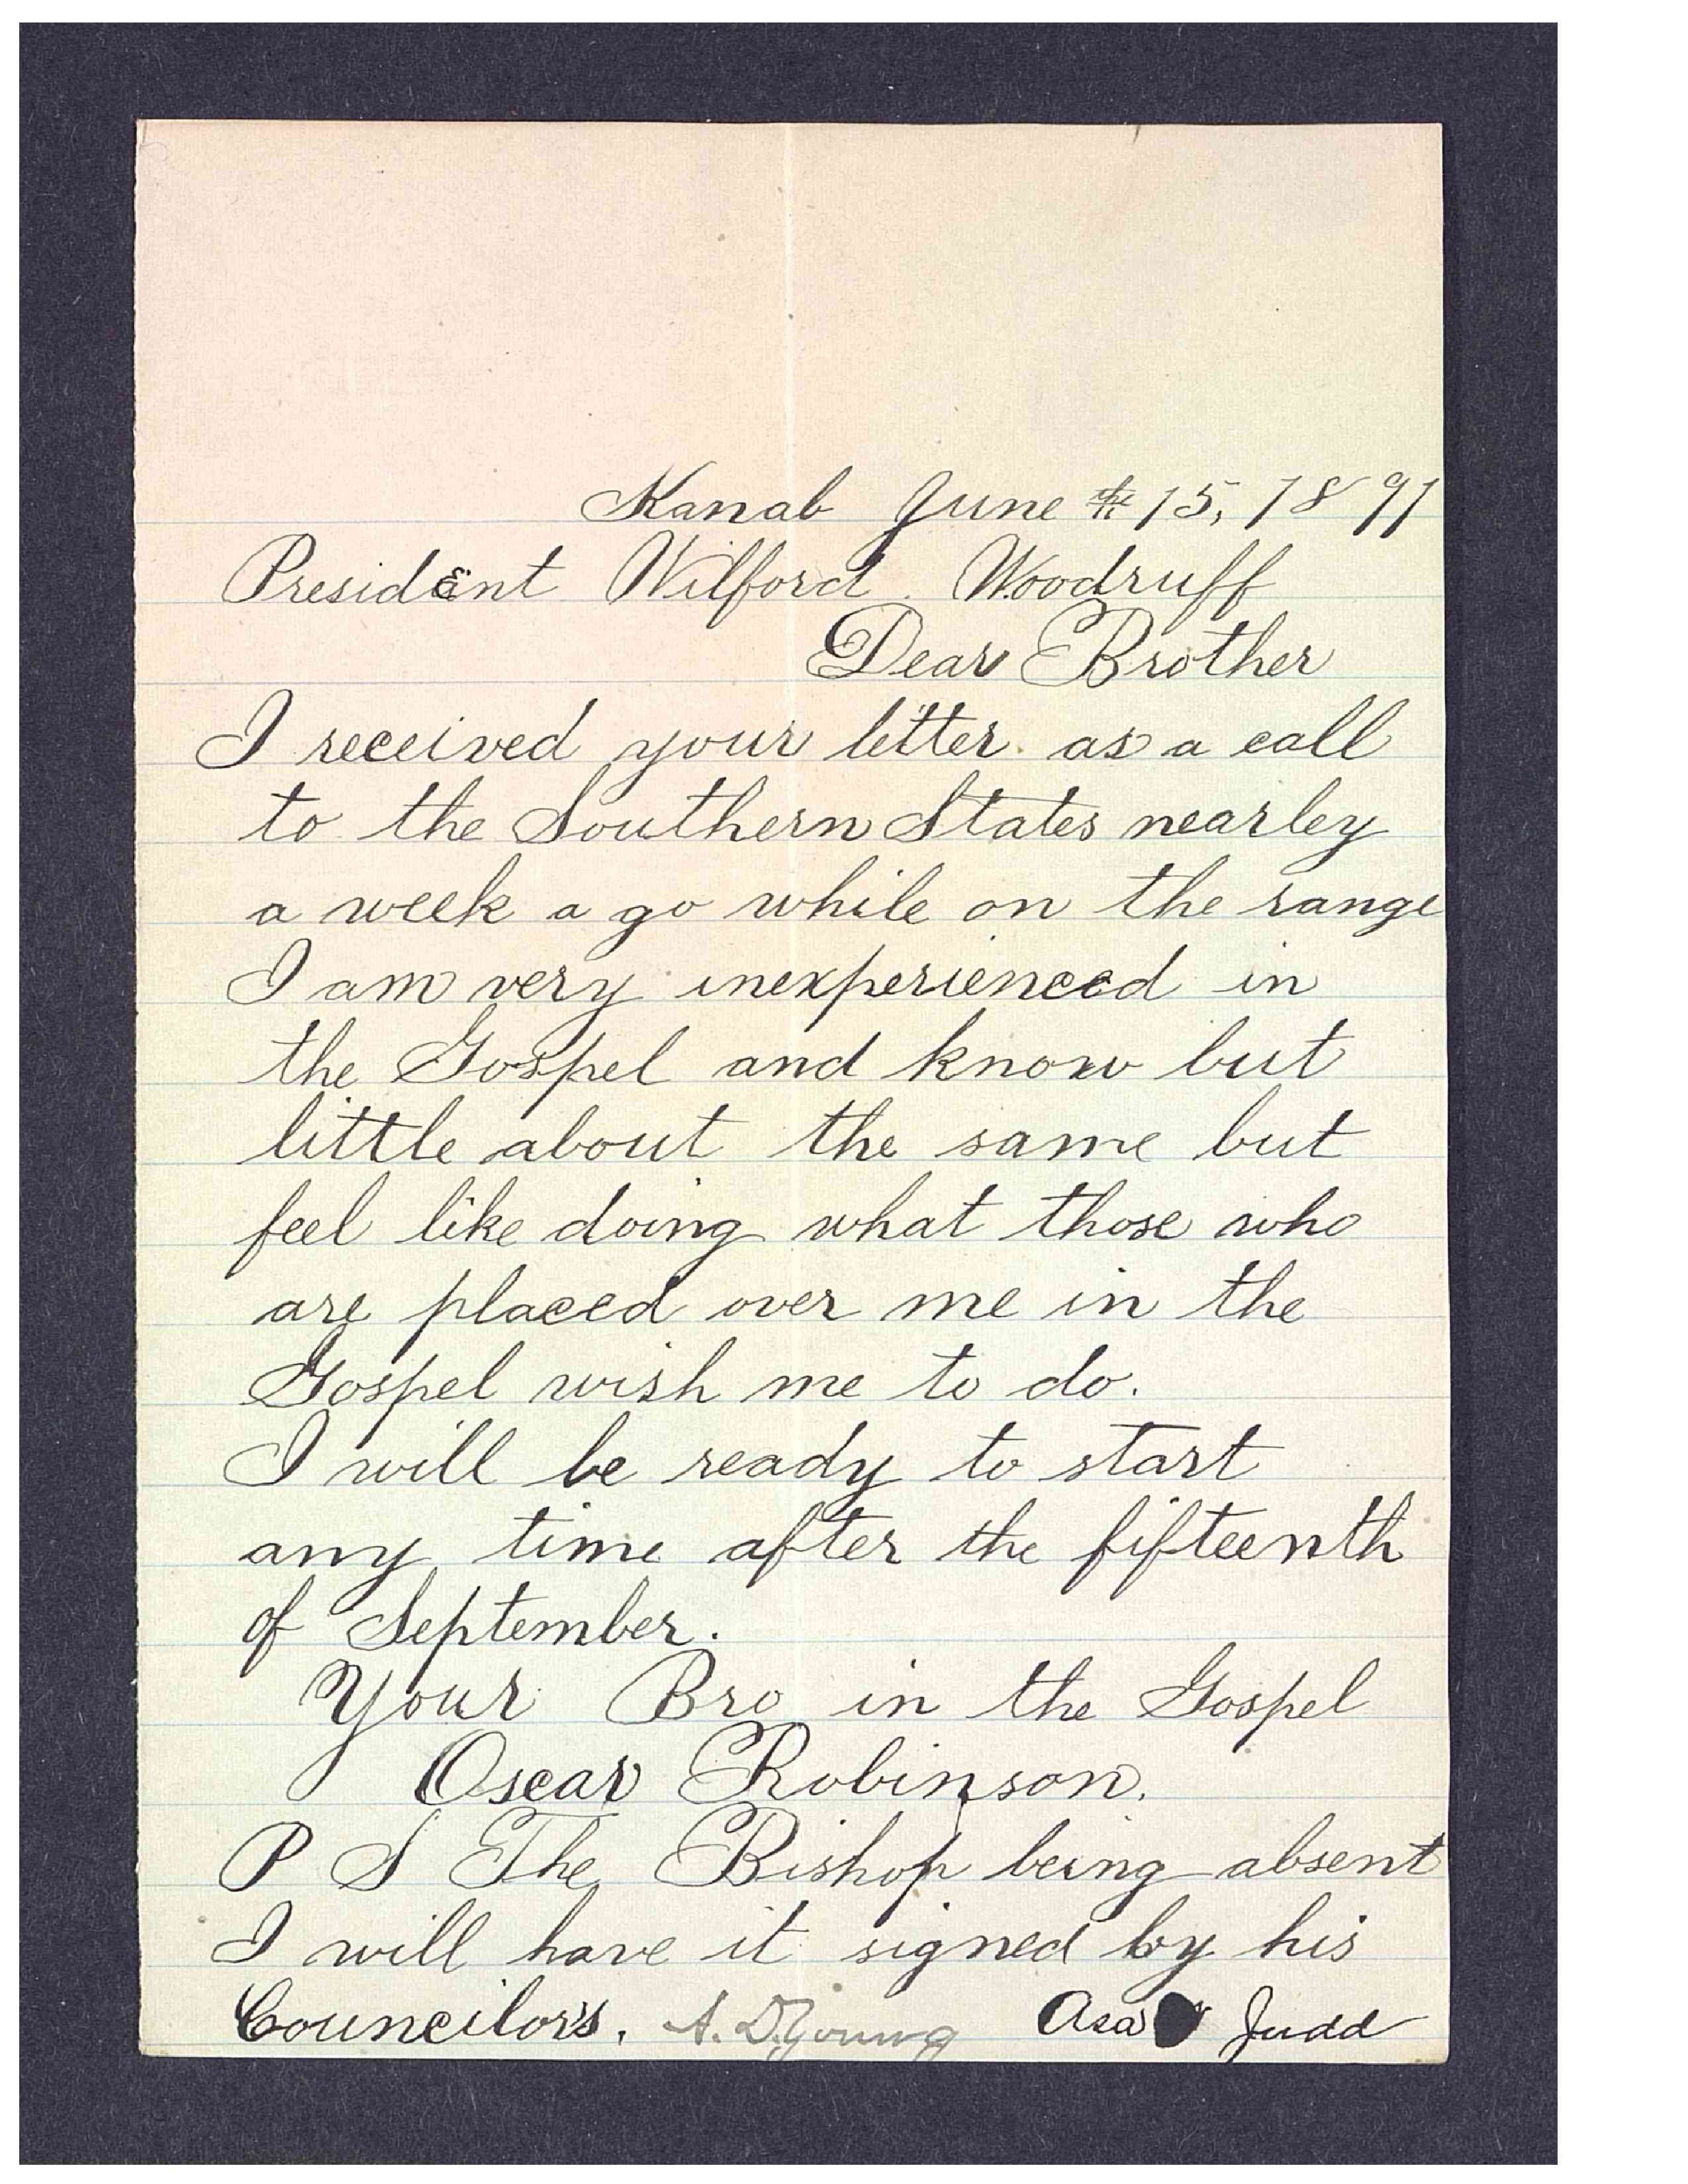 Kanab June # 15, 1891
President Wilford. Woodruff
Dear Brother
I received your letter as a call
to the Southern States nearley
a week a go while on the range
I am very inexperienced in
the Gospel and know but
little about the same but
feel like doing what those who
are placed over me in the
Gospel wish me to do.
I will be ready to start
any time after the fifteenth
of September.
Your Bro in the Gospel
Oscar Robinson.
P S The Bishop being absent
I will have it signed by his
Councilors. A. D. Young Asa Judd